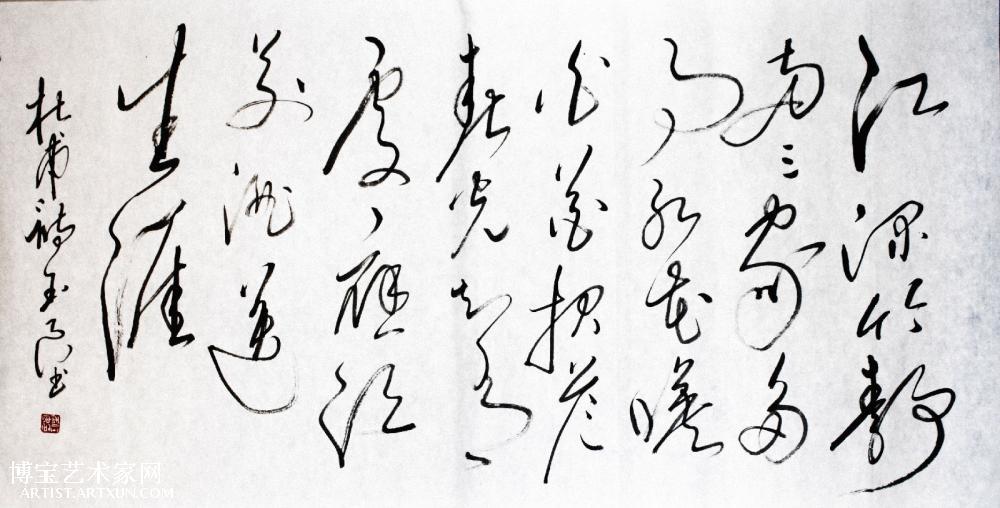 江深竹静
两三家多
事红花暎
白花报答
春光知有
处应须
美酒送
生涯
杜甫诗玉良书
博宝艺术家网
ARTIST.ARTXUN.COM